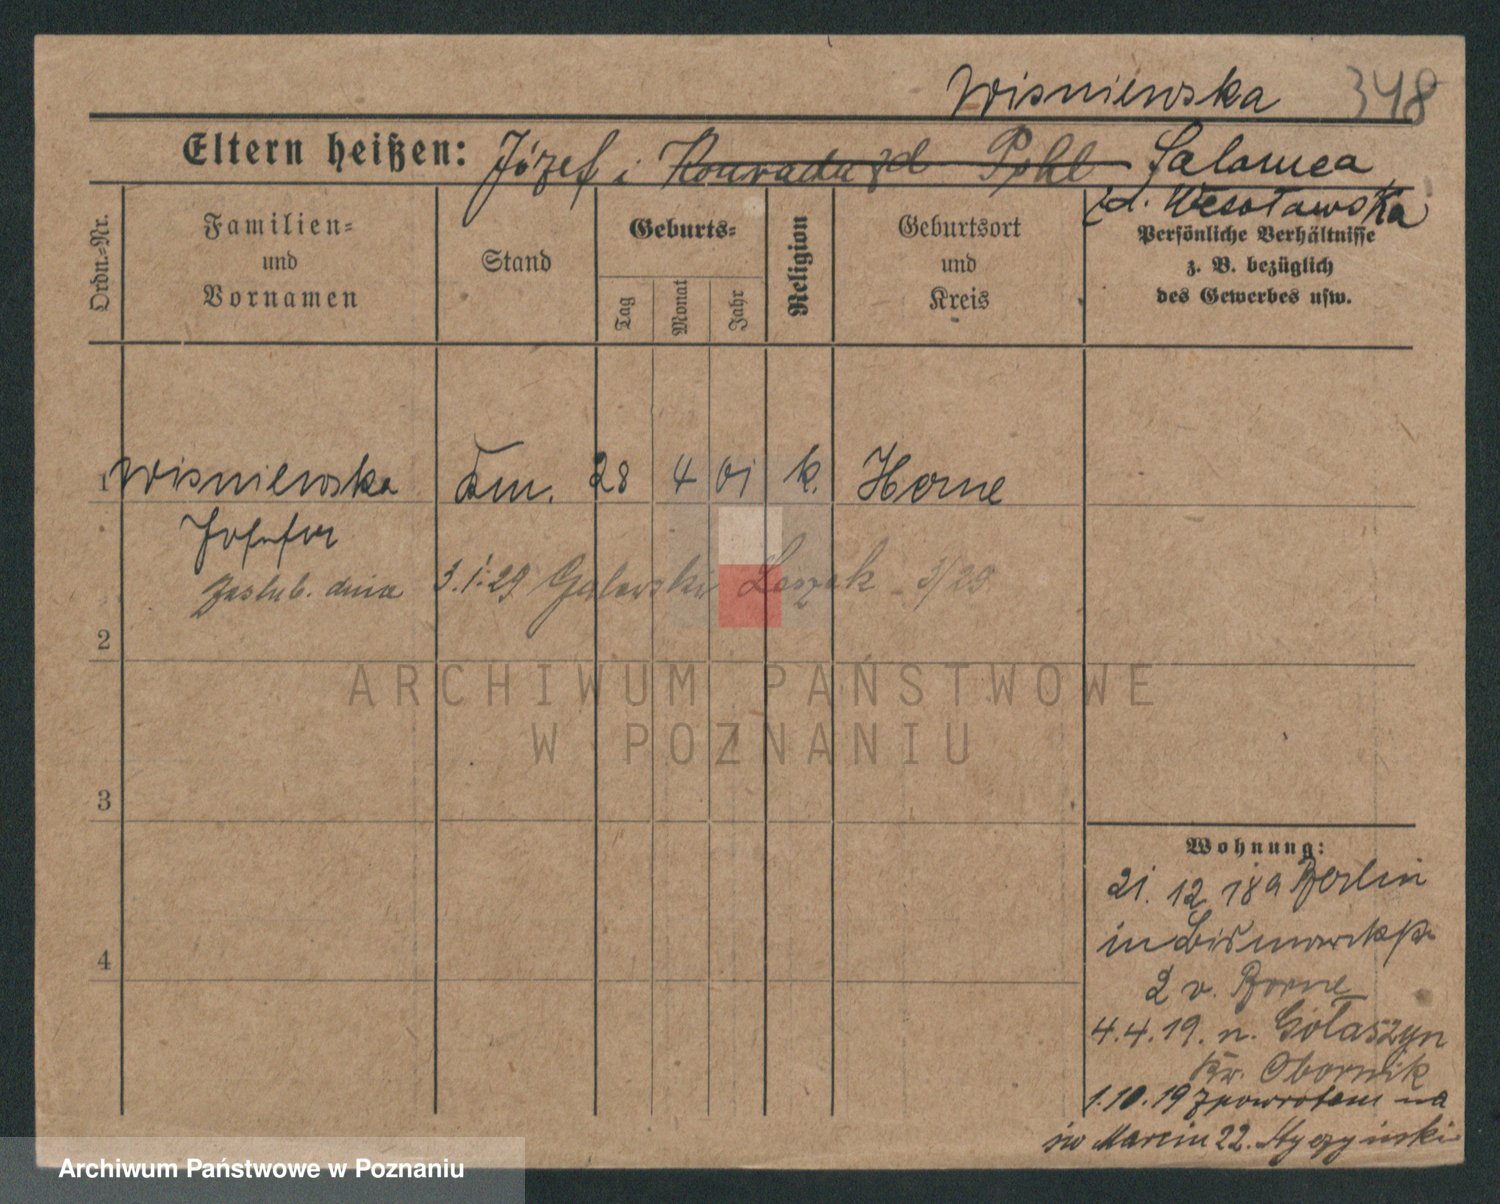 Wisniewska 348
Eltern heißen: Józef i Konrada zd Pohl Salomea
zd. Wesołowska
Ordn.-Nr.
Familien-
und
Vornamen
Stand
Geburts-
Tag
Monat
Jahr
Religion
Geburtsort
und
Kreis
Persönliche Verhältnisse
z. B. bezüglich
des Gewerbes usw.
1 Wisniewska Km. 28 4 01 k. Horne
zaslub. dnia 3.1.29 Galewski Leszek 3/29
2
ARCHIWUM PAŃSTWOWE
W POZNANIU
3
4
Wohnung:
21. 12 18 a Berlin
in Bismarckstr
2 v. Borne
4.4.19. n. Gołaszyn
Kr. Obornik
1.10.19 zpowrotem na
św Marcin 22.
Archiwum Państwowe w Poznaniu